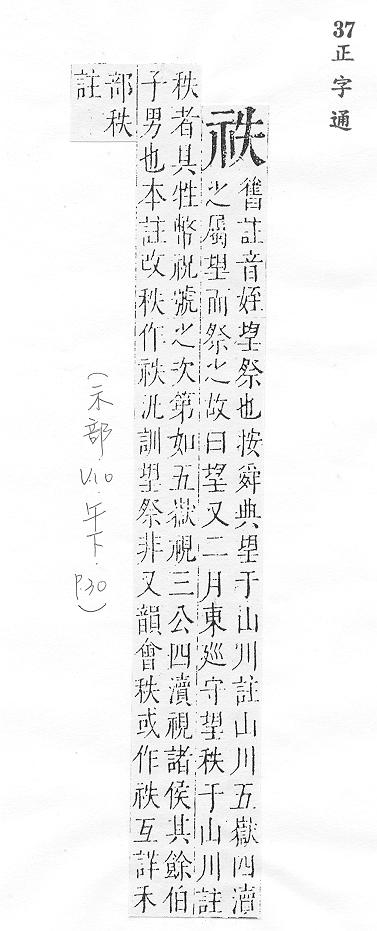 37
正字通
祑
舊註音姪望祭也按舜典望于山川註山川五嶽四瀆
之屬望而祭之故曰望又二月東廵守望秩于山川註
秩者具牲幣祝號之次第如五嶽視三公四瀆視諸侯其餘伯
子男也本註改秩作祑汎訓望祭非又韻會秩或作祑互詳禾
部秩
註
(示部
V10.午下.
P30)